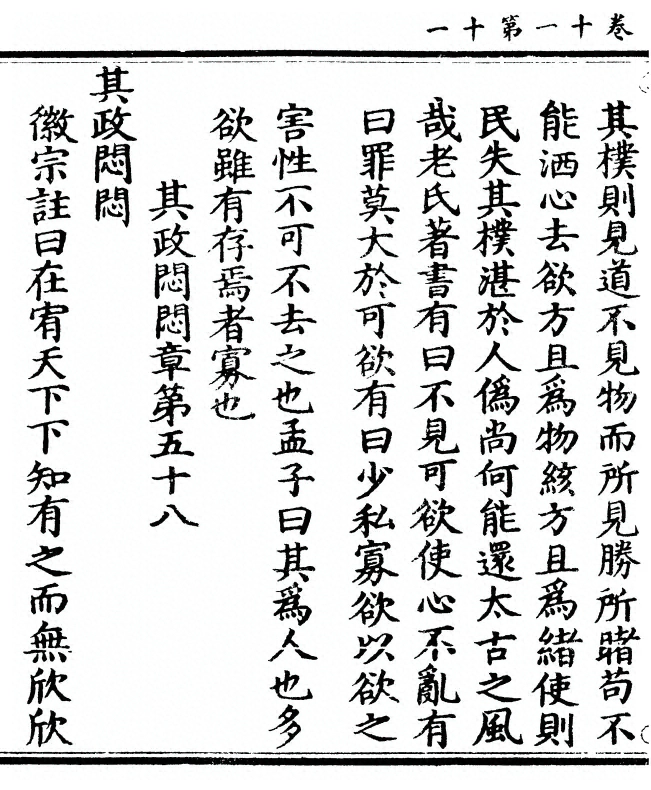 卷十一第十一
其樸則見道不見物而所見勝所睹苟不
能洒心去欲方且爲物絯方且爲緖使則
民失其樸湛於人僞尚何能還太古之風
哉老氏著書有曰不見可欲使心不亂有
曰罪莫大於可欲有曰少私寡欲以欲之
害性不可不去之也孟子曰其爲人也多
欲雖有存焉者寡也
其政悶悶章第五十八
其政悶悶
徽宗註曰在宥天下下知有之而無欣欣